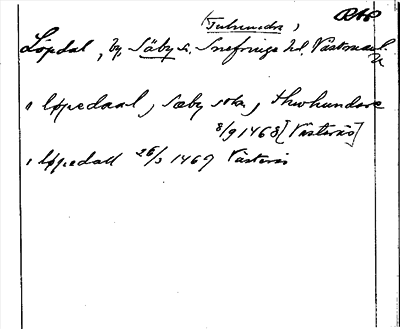 (Tuhundra)
Löpdal, by, Säby s. Snefringe hd. Västmanl.
i löpedaal, sæby sokn, thwhundare
8/9 1468 [Västerås]
i löpedall 26/3 1469 Västerås